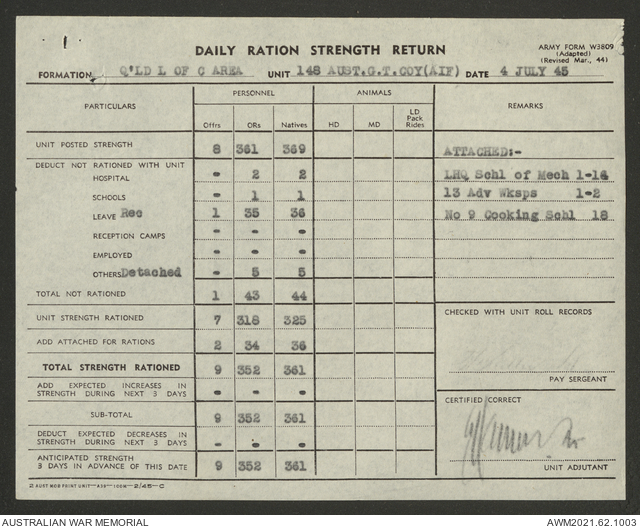 DAILY RATION STRENGTH RETURN
ARMY FORM W3809
(Adapted)
(Revised Mar., 44)
FORMATION Q'LD L OF C AREA UNIT 148 AUST.G.T.COY(AIF) DATE 4 JULY 45
PARTICULARS PERSONNEL ANIMALS REMARKS
Offrs ORs Natives HD MD LD Pack Rides
UNIT POSTED STRENGTH 8 361 369
ATTACHED:-
DEDUCT NOT RATIONED WITH UNIT
HOSPITAL - 2 2 LHQ Schl of Mech 1-14
SCHOOLS - 1 1 13 Adv Wksps 1-2
LEAVE Rec 1 35 36 No 9 Cooking Schl 18
RECEPTION CAMPS - - -
EMPLOYED - - -
OTHERS Detached - 5 5
TOTAL NOT RATIONED 1 43 44
UNIT STRENGTH RATIONED 7 318 325 CHECKED WITH UNIT ROLL RECORDS
ADD ATTACHED FOR RATIONS 2 34 36
TOTAL STRENGTH RATIONED 9 352 361
PAY SERGEANT
ADD EXPECTED INCREASES IN
STRENGTH DURING NEXT 3 DAYS - - -
CERTIFIED CORRECT
SUB-TOTAL 9 352 361
DEDUCT EXPECTED DECREASES IN
STRENGTH DURING NEXT 3 DAYS - - -
ANTICIPATED STRENGTH
3 DAYS IN ADVANCE OF THIS DATE 9 352 361
UNIT ADJUTANT
2 AUST MOB PRINT UNIT—A59—100M—2/45—C
AUSTRALIAN WAR MEMORIAL AWM2021.62.1003